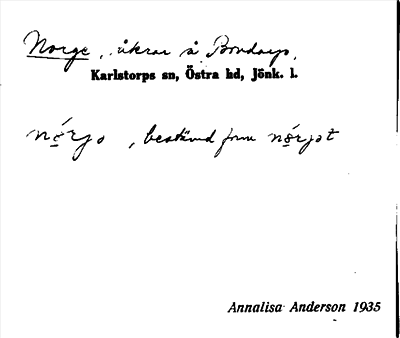 Norge, åkrar å Bondarp,
Karlstorps sn, Östra hd, Jönk. l.
nórjə, bestämd form nórjət
Annalisa Anderson 1935